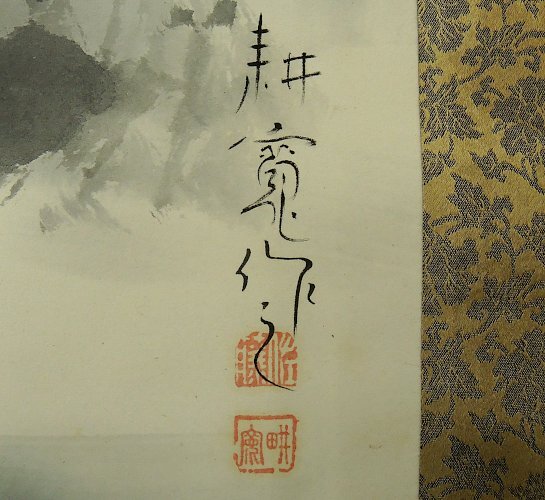 耕寬作之
畊寬